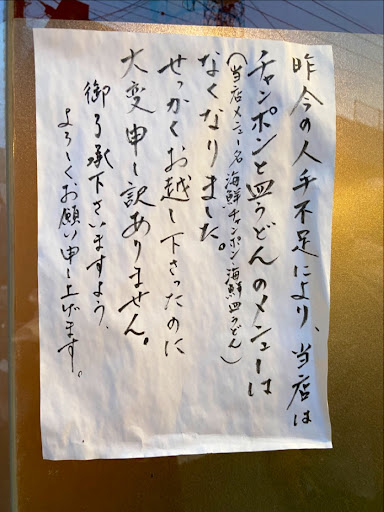 昨今の人手不足により、当店は
チャンポンと皿うどんのメニューは
(当店メニュー名 海鮮チャンポン・海鮮皿うどん)
なくなりました。
せっかくお越し下さったのに
大変申し訳ありません。
御了承下さいますよう、
よろしくお願い申し上げます。